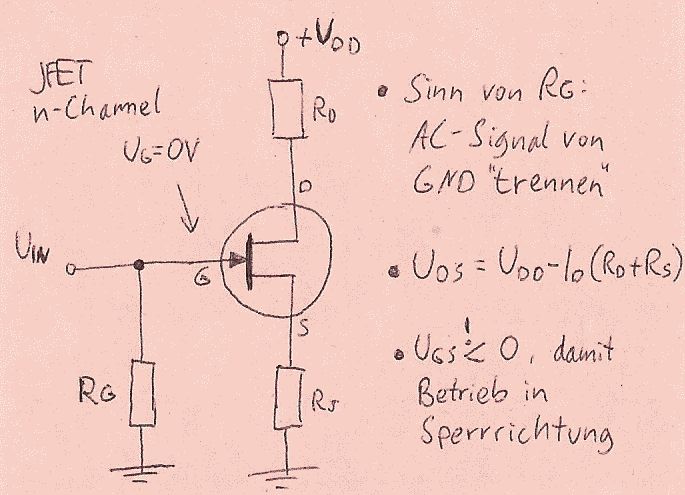 JFET
n-Channel
UG=0V
+UDD
RD
D
UIN
G
S
RG
RS
• Sinn von RG:
AC-Signal von
GND "trennen"
• UDS = UDD-ID(RD+RS)
• UGS !< 0, damit
Betrieb in
Sperrrichtung